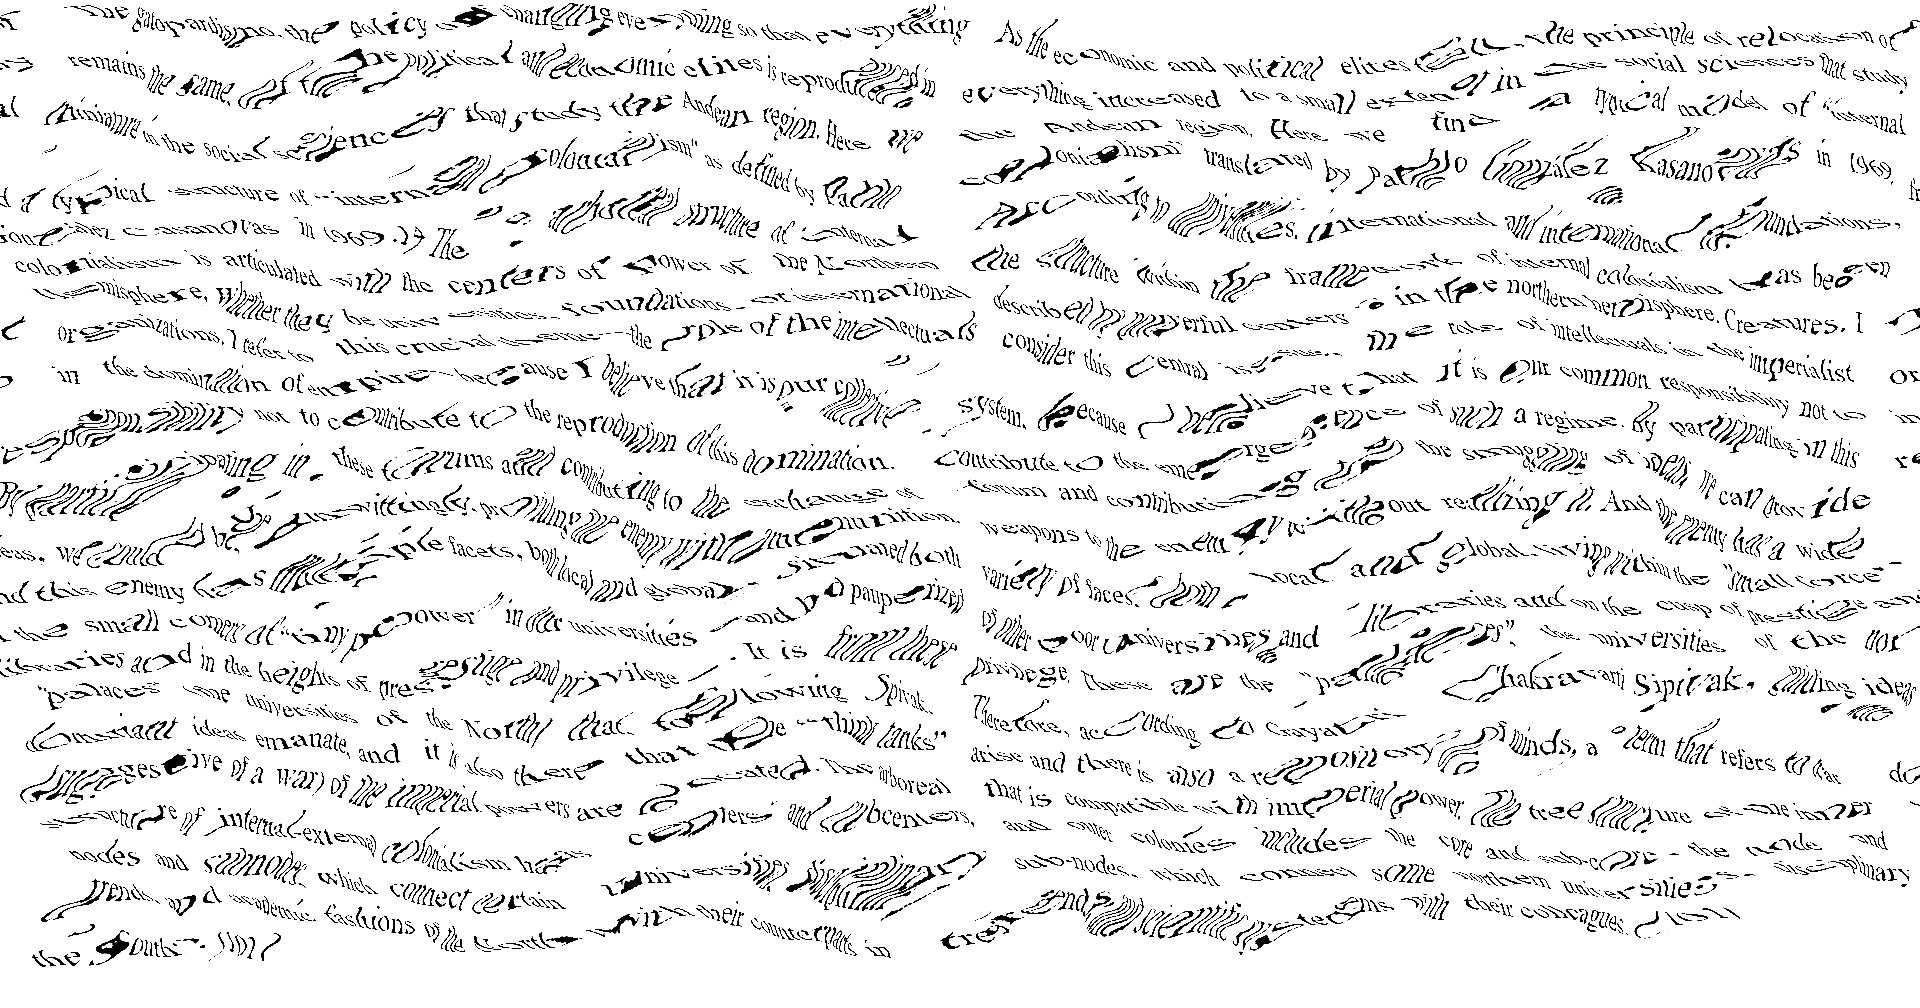 The gatopardismo, the policy of changing everything so that everything
remains the same, of the The political and economic elites is reproduced in
miniature in the social sciences that study the Andean region. Here we
a typical structure of "internal colonialism" as defined by Pablo
González Casanovas in 1969. The structure of internal
colonialism is articulated with the centers of power of the Northern
Hemisphere, whether they be universities, foundations, or international
organizations. I refer to this crucial theme—the role of the intellectuals
in the domination of empire—because I believe that it is our collective
responsibility not to contribute to the reproduction of this domination.
By participating in these forums and contributing to the exchange of
ideas, we could be, unwittingly, providing the enemy with ammunition.
And this enemy has multiple facets, both local and global, situated both
in the small corners of "tiny power" in our universities and pauperized
libraries and in the heights of prestige and privilege. It is from these
"palaces" (the universities of the North) that, following Spivak,
dominant ideas emanate, and it is also there that the "think tanks"
(suggestive of a war) of the imperial powers are located. The arboreal
structure of internal-external colonialism has centers and subcenters,
nodes and subnodes, which connect certain universities, disciplinary
trends, and academic fashions of the North with their counterparts in
the South.
As the economic and political elites the principle of relocation of
everything increased to a small extent in the social sciences that study
the Andean region. Here we find a typical model of "internal
colonialism" translated by Pablo González Kasanovas in 1969.
According to universities, international and international foundations,
the structure within the framework of internal colonialism has been
described by powerful centers in the northern hemisphere. Creatures, I
consider this central issue the role of intellectuals in the imperialist
system, because I believe that it is our common responsibility not to
contribute to the emergence of such a regime. By participating in this
forum and contributing to the smuggling of ideas, we can provide
weapons to the enemy without realizing it. And the enemy has a wide
variety of faces, both local and global, living within the "small force"
of other poor universities and libraries and on the cusp of prestige and
privilege. These are the "palaces", the universities of the
Therefore, according to Gayatri Chakravarti Sipivak, guiding ideas
arise and there is also a repository of minds, a term that refers to
that is compatible with imperial power. The tree structure of the inner
and outer colonies includes the core and sub-core - the node and
sub-nodes, which connect some northern universities - disciplinary
trends and scientific systems with their colleagues.